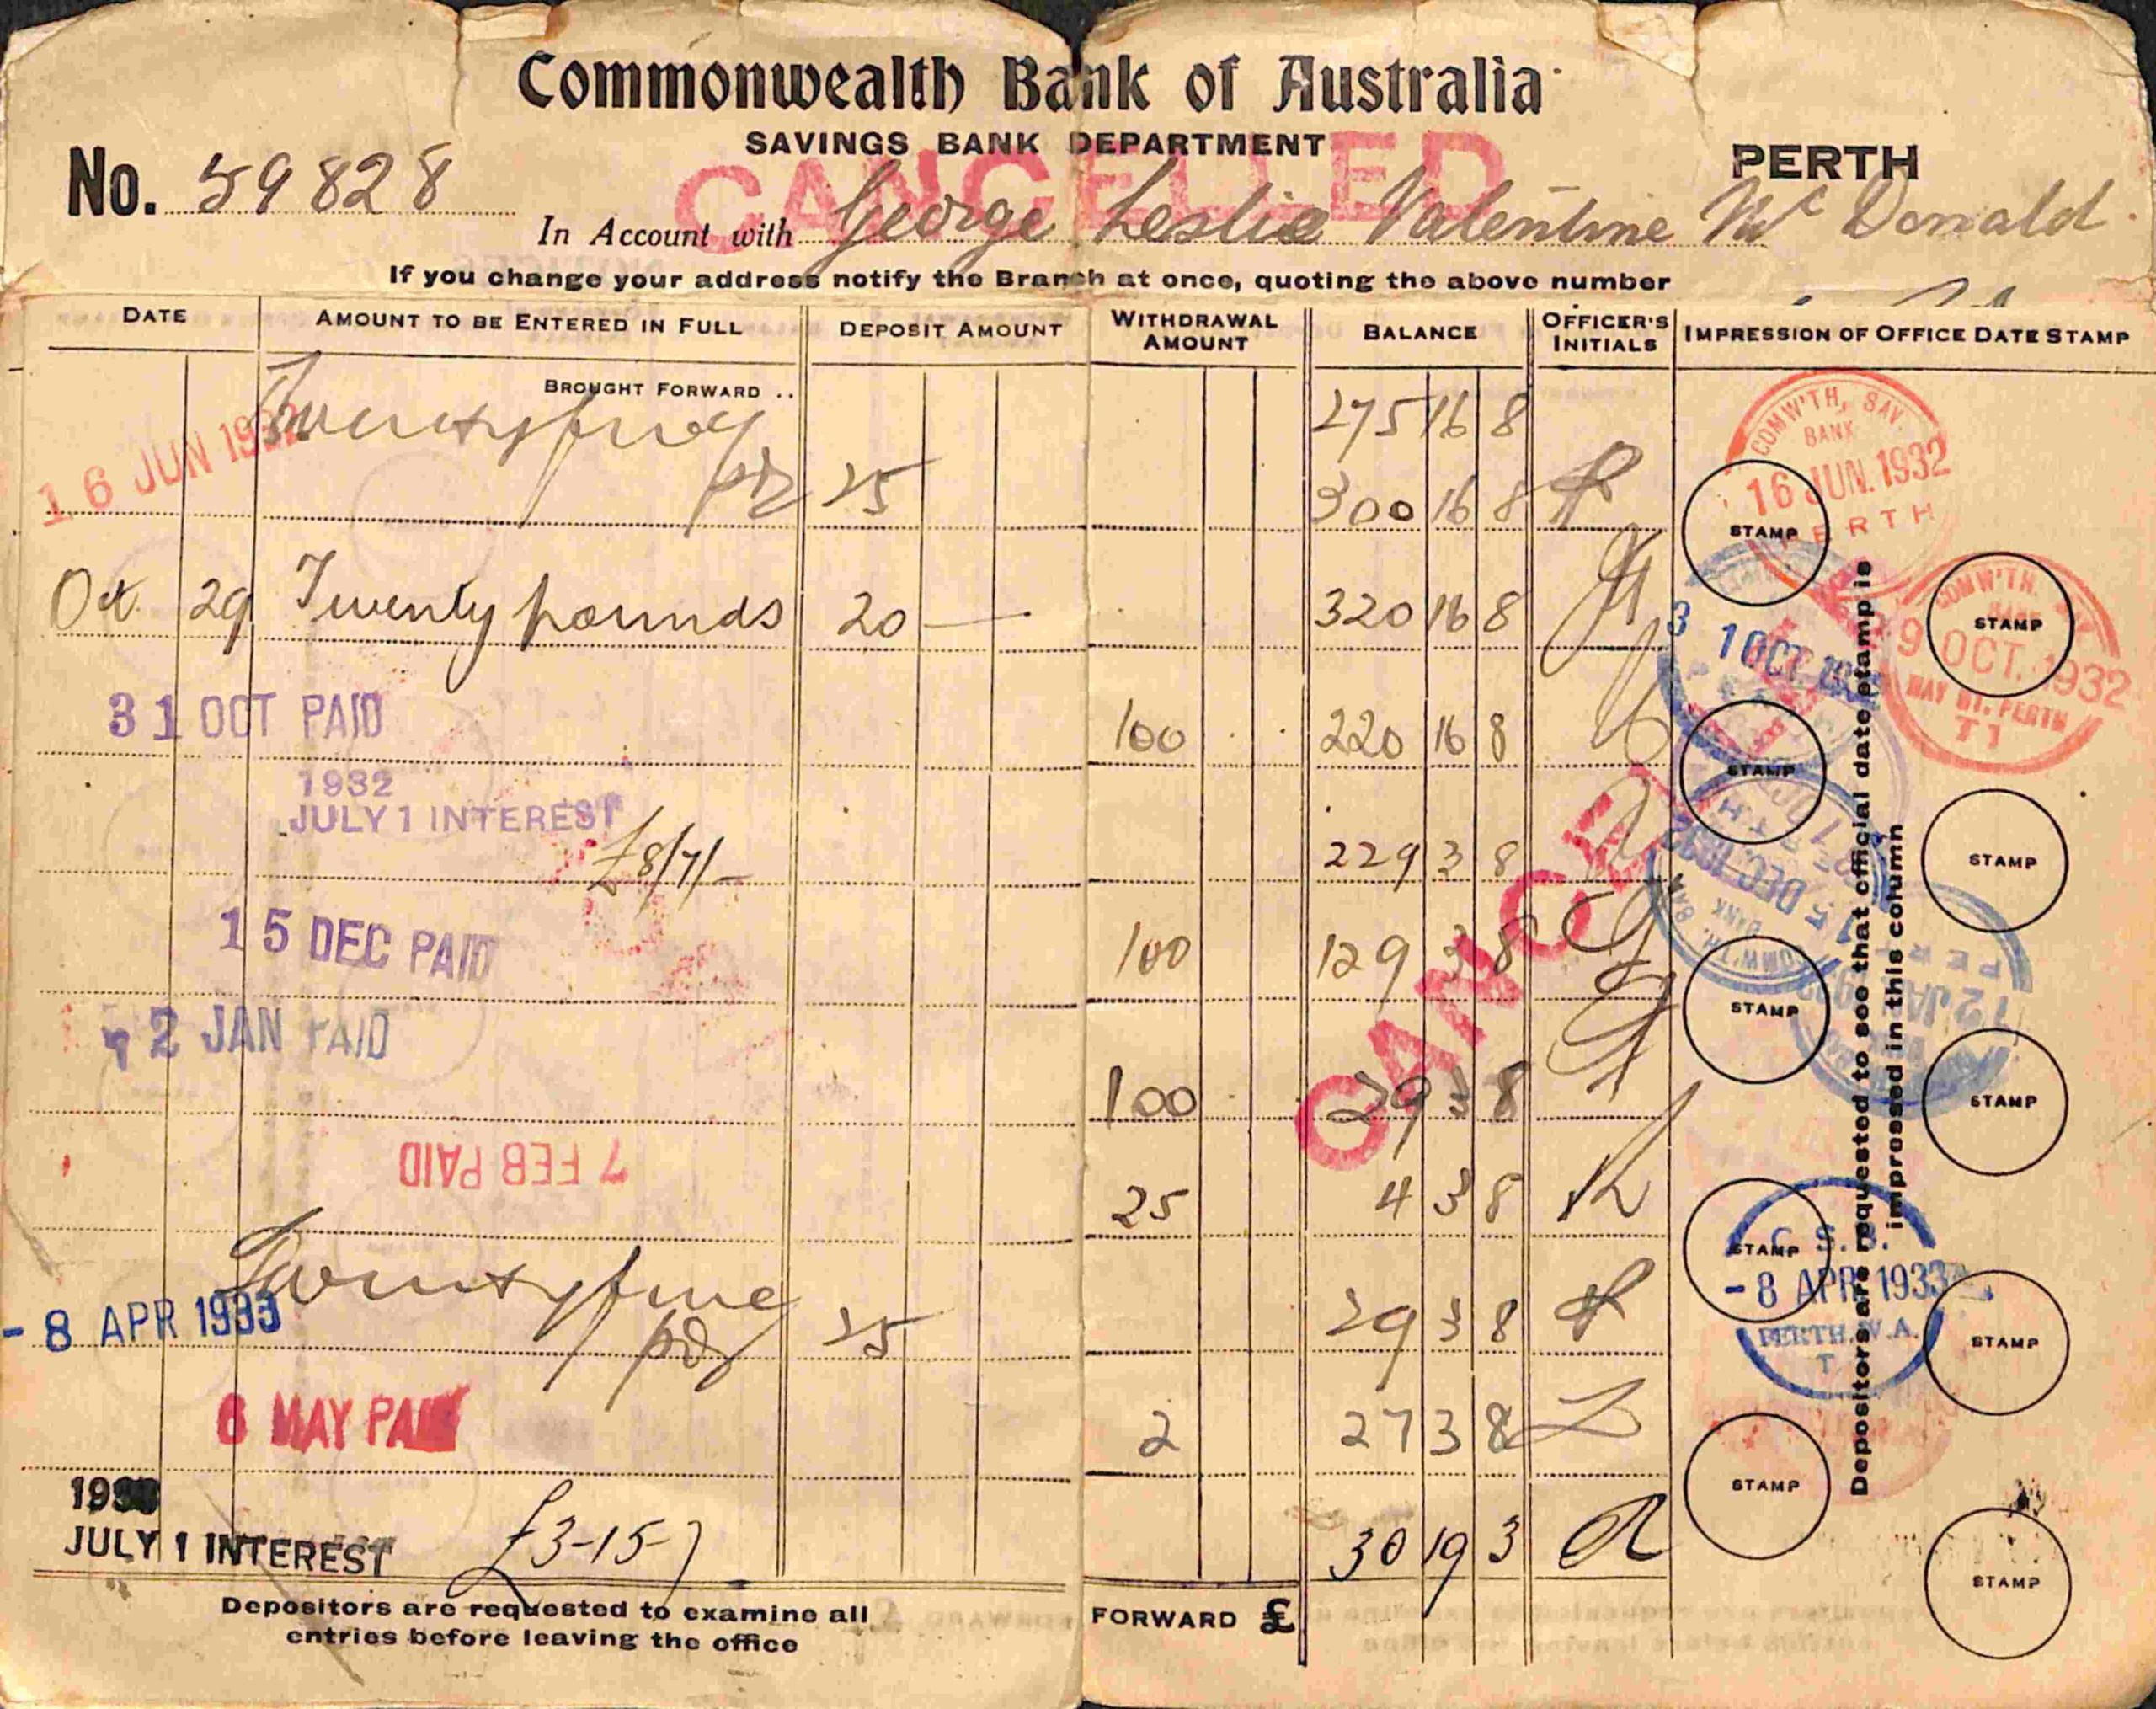 Commonwealth Bank of Australia
SAVINGS BANK DEPARTMENT
PERTH
CANCELLED
No. 59828
In Account with George Leslie Valentine McDonald
If you change your address notify the Branch at once, quoting the above number
DATE AMOUNT TO BE ENTERED IN FULL DEPOSIT AMOUNT WITHDRAWAL AMOUNT BALANCE OFFICER'S INITIALS IMPRESSION OF OFFICE DATE STAMP
BROUGHT FORWARD .. 275 16 8
16 JUN 1932 Twentyfive pds 25 300 16 8
COMW'TH, SAV. BANK 16 JUN. 1932 PERTH
STAMP
Oct. 29 Twenty pounds 20 — 320 16 8
COMW'TH. 29 OCT. 1932 HAY ST. PERTH T1
STAMP
31 OCT PAID 100 220 16 8
STAMP
1932
JULY 1 INTEREST
£8/7/– 229 3 8
STAMP
15 DEC PAID 100 129 3 8
CANCEL
STAMP
12 JAN PAID 100 29 3 8
STAMP
7 FEB PAID 25 4 3 8
STAMP
-8 APR 1933 Twentyfive pds 25 29 3 8
C. S. B. -8 APR 1933 PERTH. W.A. T
STAMP
6 MAY PAID 2 27 3 8
STAMP
JULY 1 INTEREST £3-15-7 30 19 3
STAMP
Depositors are requested to see that official date stamp is
impressed in this column
Depositors are requested to examine all
entries before leaving the office
FORWARD £